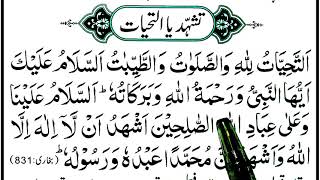 تشہد یا التحیات
اَلتَّحِيَّاتُ لِلّٰهِ وَالصَّلَوٰتُ وَالطَّيِّبٰتُ اَلسَّلَامُ عَلَيْكَ
اَيُّهَا النَّبِيُّ وَرَحْمَةُ اللّٰهِ وَبَرَكَاتُهٗ ؕ اَلسَّلَامُ عَلَيْنَا
وَعَلٰى عِبَادِ اللّٰهِ الصّٰلِحِيْنَ اَشْهَدُ اَنْ لَّا اِلٰهَ اِلَّا
اللّٰهُ وَاَشْهَدُ اَنَّ مُحَمَّدًا عَبْدُهٗ وَرَسُوْلُهٗ ؕ (بخاری:831)